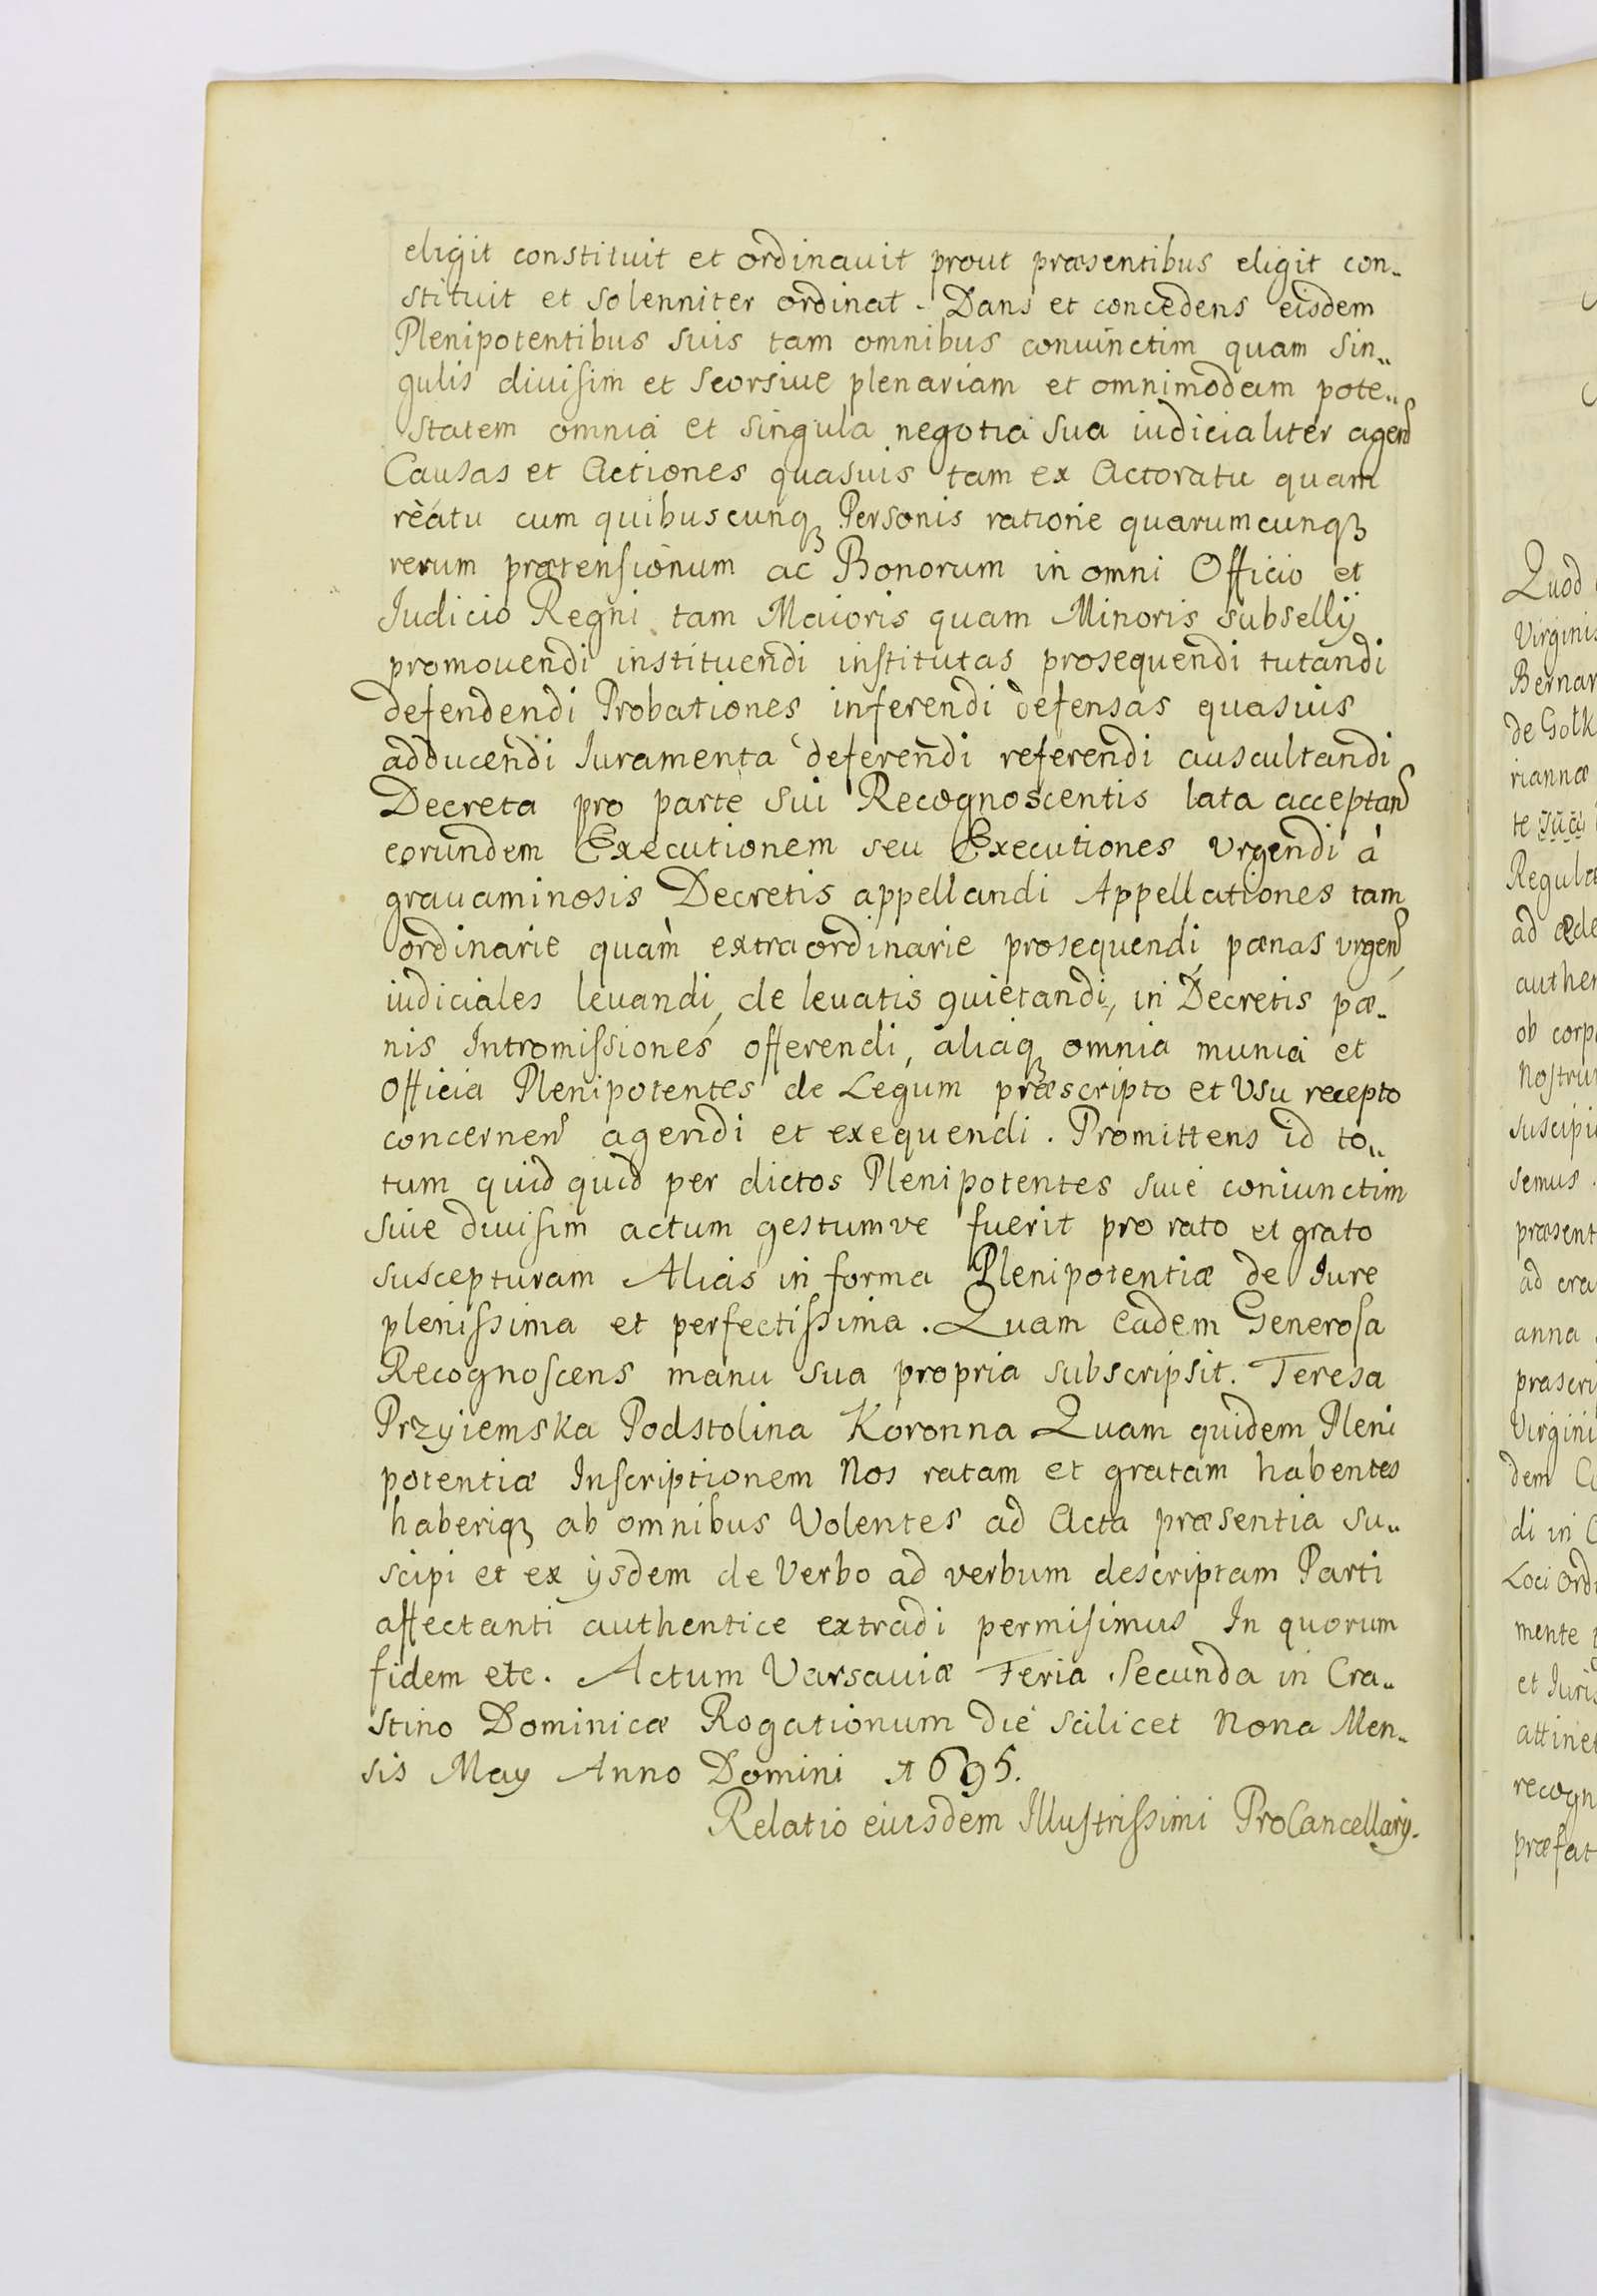 eligit constituit et ordinauit prout præsentibus eligit con-
stituit et solenniter ordinat. Dans et concedens eisdem
Plenipotentibus suis tam omnibus coniunctim quam sin-
gulis diuisim et seorsiue plenariam et omnimodam pote-
statem omnia et singula negotia sua iudicialiter agend
Causas et Actiones quasuis tam ex Actoratu quam
reatu cum quibuscunqꝫ Personis ratione quarumcunqꝫ
rerum prætensionum ac Bonorum in omni Officio et
Judicio Regni tam Maioris quam Minoris subsellij
promouendi instituendi institutas prosequendi tutandi
defendendi Probationes inferendi defensas quasuis
adducendi Iuramenta deferendi referendi auscultandi
Decreta pro parte sui Recognoscentis lata acceptand
eorundem Executionem seu Executiones Vrgendi à
grauaminosis Decretis appellandi Appellationes tam
ordinarie quàm extraordinarie prosequendi pænas vrgend,
iudiciales leuandi, de leuatis quietandi, in Decretis pæ-
nis Intromissiones offerendi, aliaqꝫ omnia munia et
Officia Plenipotentes de Legum præscripto et Vsu recepto
concernen agendi et exequendi. Promittens id to-
tum quidquid per dictos Plenipotentes siue coniunctim
siue diuisim actum gestumve fuerit pro rato et grato
suscepturam Alias in forma Plenipotentiæ de Iure
plenissima et perfectissima. Quam eadem Generosa
Recognoscens manu sua propria subscripsit. Teresa
Przyiemska Podstolina Koronna Quam quidem Pleni
potentiæ Inscriptionem Nos ratam et gratam habentes
haberiqꝫ ab omnibus Volentes ad Acta præsentia su-
scipi et ex ijsdem de Verbo ad verbum descriptam Parti
affectanti authentice extradi permisimus In quorum
fidem etc. Actum Varsauiæ Feria Secunda in Cra-
stino Dominicæ Rogationum die scilicet Nona Men-
sis May Anno Domini 1695.
Relatio eiusdem Illustrissimi ProCancellarij.
Quod
Virginis
de Gotk
riannæ
ad æde
ob corp
semus.
anna
dem
di in
Loci Ord
mente
attinet
recogn
præfat